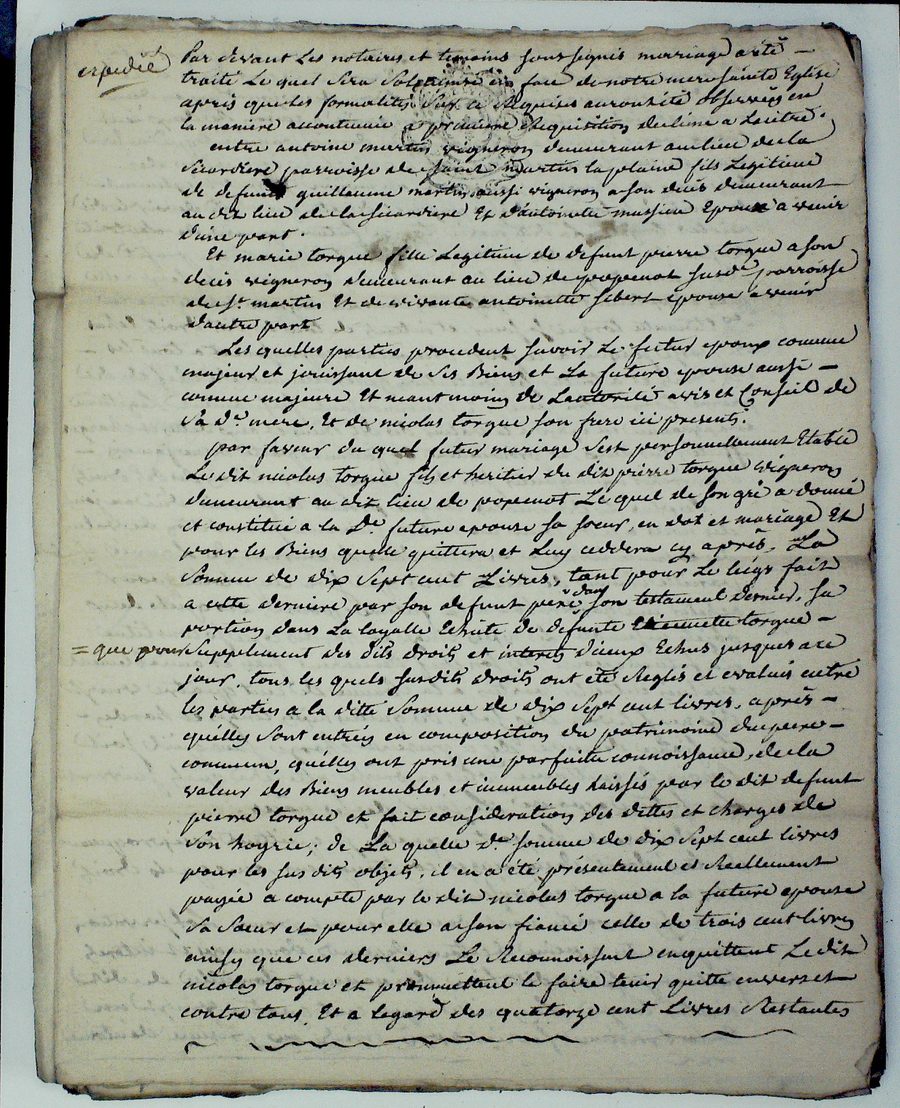 expedié
Par devant Les notaires et temoins soussignés mariage a été
traité Le quel Sera Solemnisé en face de notre mere sainte Eglise
après que les formalités Sur ce Requises auront été observées en
la maniere accoutumée a premiere Requisition de l'une a L'autre.
entre antoine martin vigneron demeurant au lieu de la
Sicardiere parroisse de saint martin la plaine fils Legitime
de defunt guillaume martin aussi vigneron a son deces demeurant
au dit lieu de la Sicardiere Et d'antoinette Epoux a venir
d'une part.
Et marie torgue fille Legitime de defunt pierre torgue a son
deces vigneron demeurant au lieu de popenot susde parroisse
de St martin Et de vivante antoinette Epouse a venir
d'autre part
Les quelles parties procedent savoir Le futur epoux comme
majeur et jouissant de Ses Biens et La future epouse aussi
comme majeure Et neantmoins de L'autorité avis et Conseil de
Sa de mere, Et de nicolas torgue son frere ici presents.
par faveur du quel futur mariage S'est personnellement Etabli
Le dit nicolas torgue fils et heritier du dit pierre torgue vigneron
demeurant au dit lieu de popenot Le quel de son gré a donné
et constitué a la De future epouse sa soeur, en dot et mariage Et
pour les Biens quelle quittera et Luy ceddera cy après, La
Somme de dix Sept cent Livres, tant pour Le legs fait
a cette derniere par son defunt pere dans son testament dernier, sa
portion dans La Legalle Echute de defunte torgue
= que pour Supplement des dits droits et interets d'iceux Echus jusques a ce
jour. tous les quels susdits droits ont été Reglés et evalués entre
les parties a la ditte Somme de dix Sept cent livres, après
qu'elles Sont entrées en composition du patrimoine du pere
commun, qu'elles ont pris une parfaite connoissance de la
valeur des Biens meubles et immeubles laissés par le dit defunt
pierre torgue et fait consideration des dettes et charges de
Son hoyrie; de La quelle de somme de dix Sept cent livres
pour les sus dits objets, il en a été présentement et Reellement
payée a compte par le dit nicolas torgue a la future epouse
Sa Soeur et pour elle a son fiancé celle de trois cent livres
ainsy que ces derniers Le Reconnoissent en quittent Le dit
nicolas torgue et promettent le faire tenir quitte envers et
contre tous, Et a L'egard des quatorze cent Livres Restantes